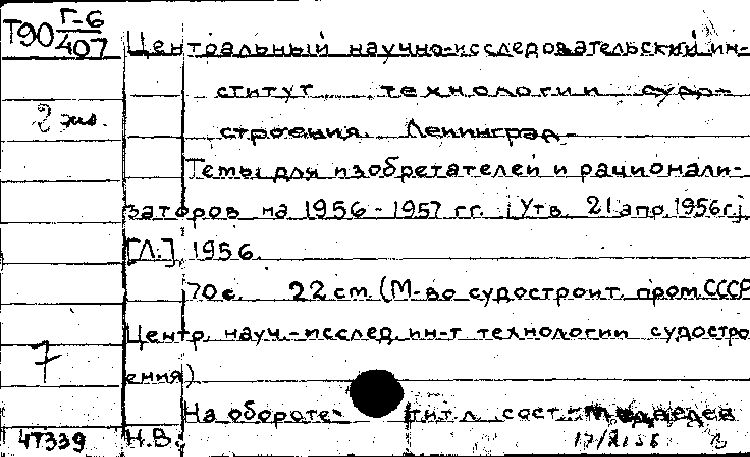 Т90 Г-6
407
Центральный научно-исследовательский ин-
ститут технологии судо-
2 экз.
строения. Ленинград-
Темы для изобретателей и рационали-
заторов на 1956-1957 гг. [Утв. 21 апр. 1956 г.]
[Л.], 1956.
70 с. 22 см. (М-во судостроит. пром. СССР
Центр. науч.-исслед. ин-т технологии судостро
7
ения)
На обороте тит. л. сост.: Медведев
47339 Н.В.